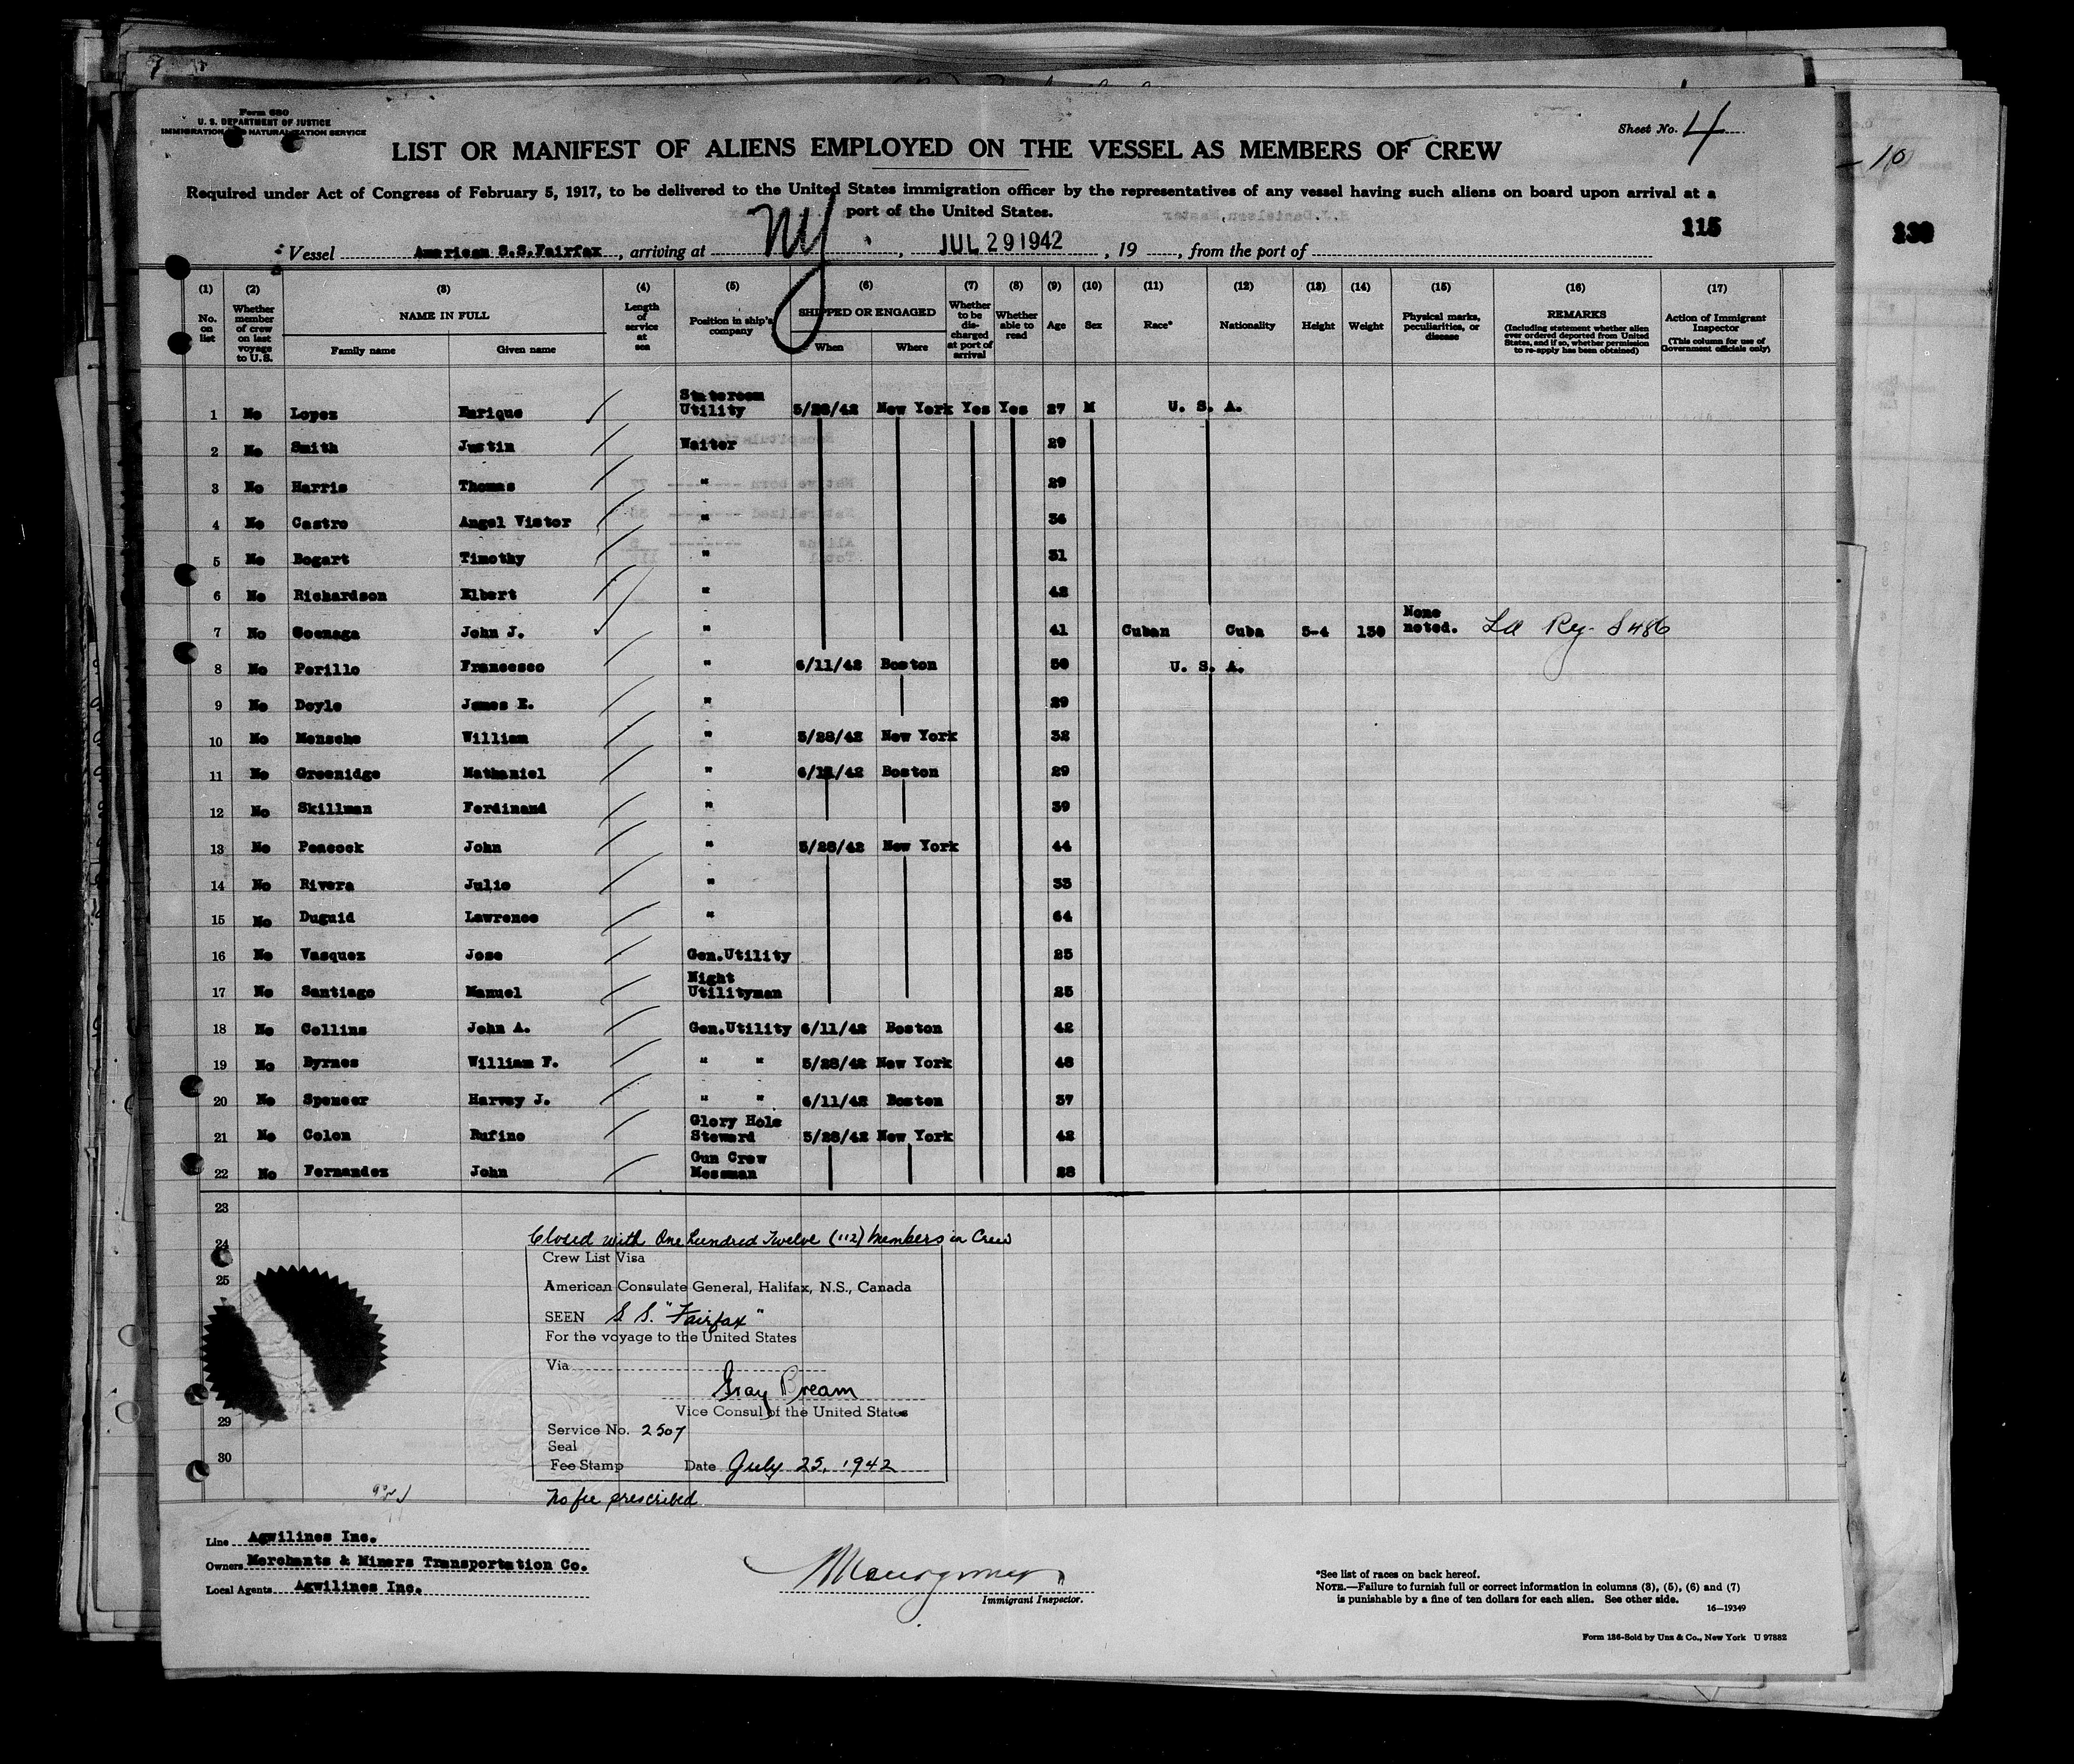 Form 680
U. S. DEPARTMENT OF JUSTICE
IMMIGRATION AND NATURALIZATION SERVICE
Sheet No. 4
LIST OR MANIFEST OF ALIENS EMPLOYED ON THE VESSEL AS MEMBERS OF CREW
Required under Act of Congress of February 5, 1917, to be delivered to the United States immigration officer by the representatives of any vessel having such aliens on board upon arrival at a
port of the United States.
115
Vessel American S.S.Fairfax, arriving at NY, JUL 29 1942, 19, from the port of
(1) (2) (3) (4) (5) (6) (7) (8) (9) (10) (11) (12) (13) (14) (15) (16) (17)
No. on list
Whether member of crew on last voyage to U.S.
NAME IN FULL
Family name Given name
Length of service at sea
Position in ship's company
SHIPPED OR ENGAGED
When Where
Whether to be discharged at port of arrival
Whether able to read
Age Sex Race* Nationality Height Weight
Physical marks, peculiarities, or disease
REMARKS
(Including statement whether alien ever ordered deported from United States, and if so, whether permission to re-apply has been obtained)
Action of Immigrant Inspector
(This column for use of Government officials only)
1 No Lopez Enrique Stateroom Utility 5/28/42 New York Yes Yes 27 M U. S. A.
2 No Smith Justin Waiter 29
3 No Harris Thomas " 29
4 No Castro Angel Victor " 36
5 No Bogart Timothy " 31
6 No Richardson Elbert " 42
7 No Goenaga John J. " 41 Cuban Cuba 5-4 130 None noted.
8 No Perillo Francesco " 6/11/42 Boston 50 U. S. A.
9 No Doyle James E. " 29
10 No Mensche William " 5/28/42 New York 32
11 No Greenidge Nathaniel " 6/11/42 Boston 29
12 No Skillman Ferdinand " 39
13 No Peacock John " 5/28/42 New York 44
14 No Rivera Julio " 33
15 No Duguid Lawrence " 64
16 No Vasquez Jose Gen.Utility 25
17 No Santiago Manuel Night Utilityman 25
18 No Collins John A. Gen.Utility 6/11/42 Boston 42
19 No Byrnes William F. " " 5/28/42 New York 48
20 No Spencer Harvey J. " " 6/11/42 Boston 37
21 No Colon Rufino Glory Hole Steward 5/28/42 New York 42
22 No Fernandez John Gun Crew Messman 28
23
24
25
29
30
Closed with One hundred Twelve (112) members in Crew
Crew List Visa
American Consulate General, Halifax, N.S., Canada
SEEN S S. "Fairfax"
For the voyage to the United States
Via
Gray Bream
Vice Consul of the United States
Service No. 2507
Seal
Fee Stamp Date July 25, 1942
No fee prescribed
Line Agwilines Inc.
Owners Merchants & Miners Transportation Co.
Local Agents Agwilines Inc.
Immigrant Inspector.
*See list of races on back hereof.
NOTE.—Failure to furnish full or correct information in columns (3), (5), (6) and (7)
is punishable by a fine of ten dollars for each alien. See other side.
16—19349
Form 136-Sold by Unz & Co., New York U 97882